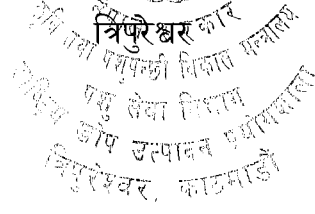 त्रिपुरेश्वर कार
कृषि तथा पशुपन्छी विकास मन्त्रालय
पशु सेवा विभाग
खोप उत्पादन प्रयोगशाला
त्रिपुरेश्वर, काठमाडौं